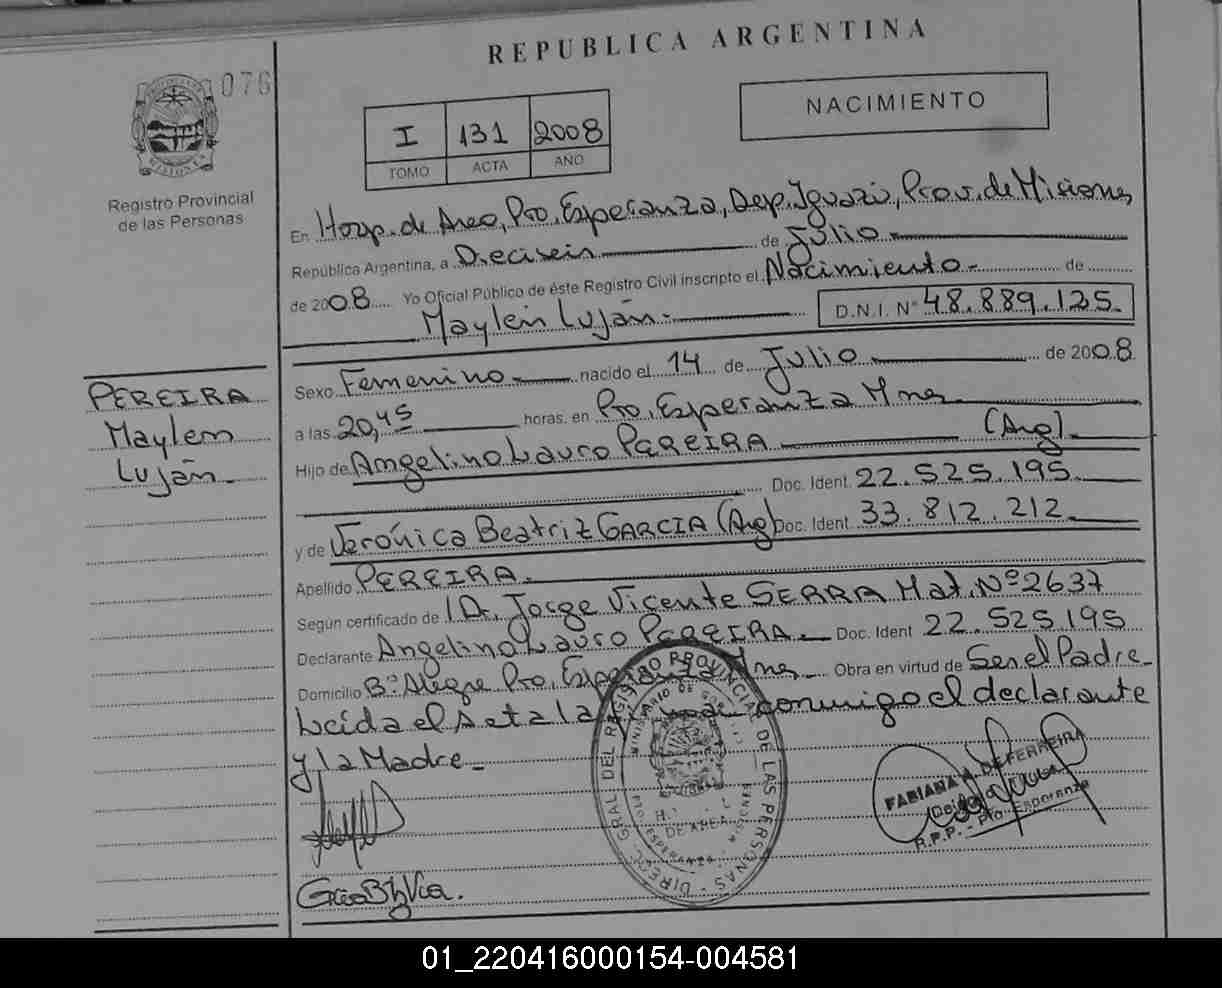 REPUBLICA ARGENTINA
076
NACIMIENTO
I 131 2008
TOMO ACTA AÑO
Registro Provincial
de las Personas
En Hosp. de Area, Pto. Esperanza, Dep. Iguazú, Prov. de Misiones
República Argentina, a Dieciseis de Julio
de 2008 Yo Oficial Público de éste Registro Civil inscripto el Nacimiento de
Maylen Luján. D.N.I. N° 48.889.125.
PEREIRA
Maylem
Luján.
Sexo Femenino nacido el 14 de Julio de 2008
a las 20,45 horas. en Pto. Esperanza Mnes
Hijo de Angelino Lauro PEREIRA (Arg)
Doc. Ident. 22.525.195
y de Verónica Beatriz GARCIA (Arg) Doc. Ident. 33.812.212
Apellido PEREIRA.
Según certificado de Dr. Jorge Vicente SERRA Mat. Nº 2637
Declarante Angelino Lauro PEREIRA Doc. Ident 22.525.195
Domicilio B° Alegre Pto. Esperanza Mnes Obra en virtud de Ser el Padre
Leida el Acta la conmigo el declarante
y la Madre
DIREC. GRAL DEL REGISTRO PROVINCIAL DE LAS PERSONAS
MINISTERIO DE
DE AREA
FABIANA A. DE FERREIRA
R.P.P. - Pto. Esperanza
01_220416000154-004581